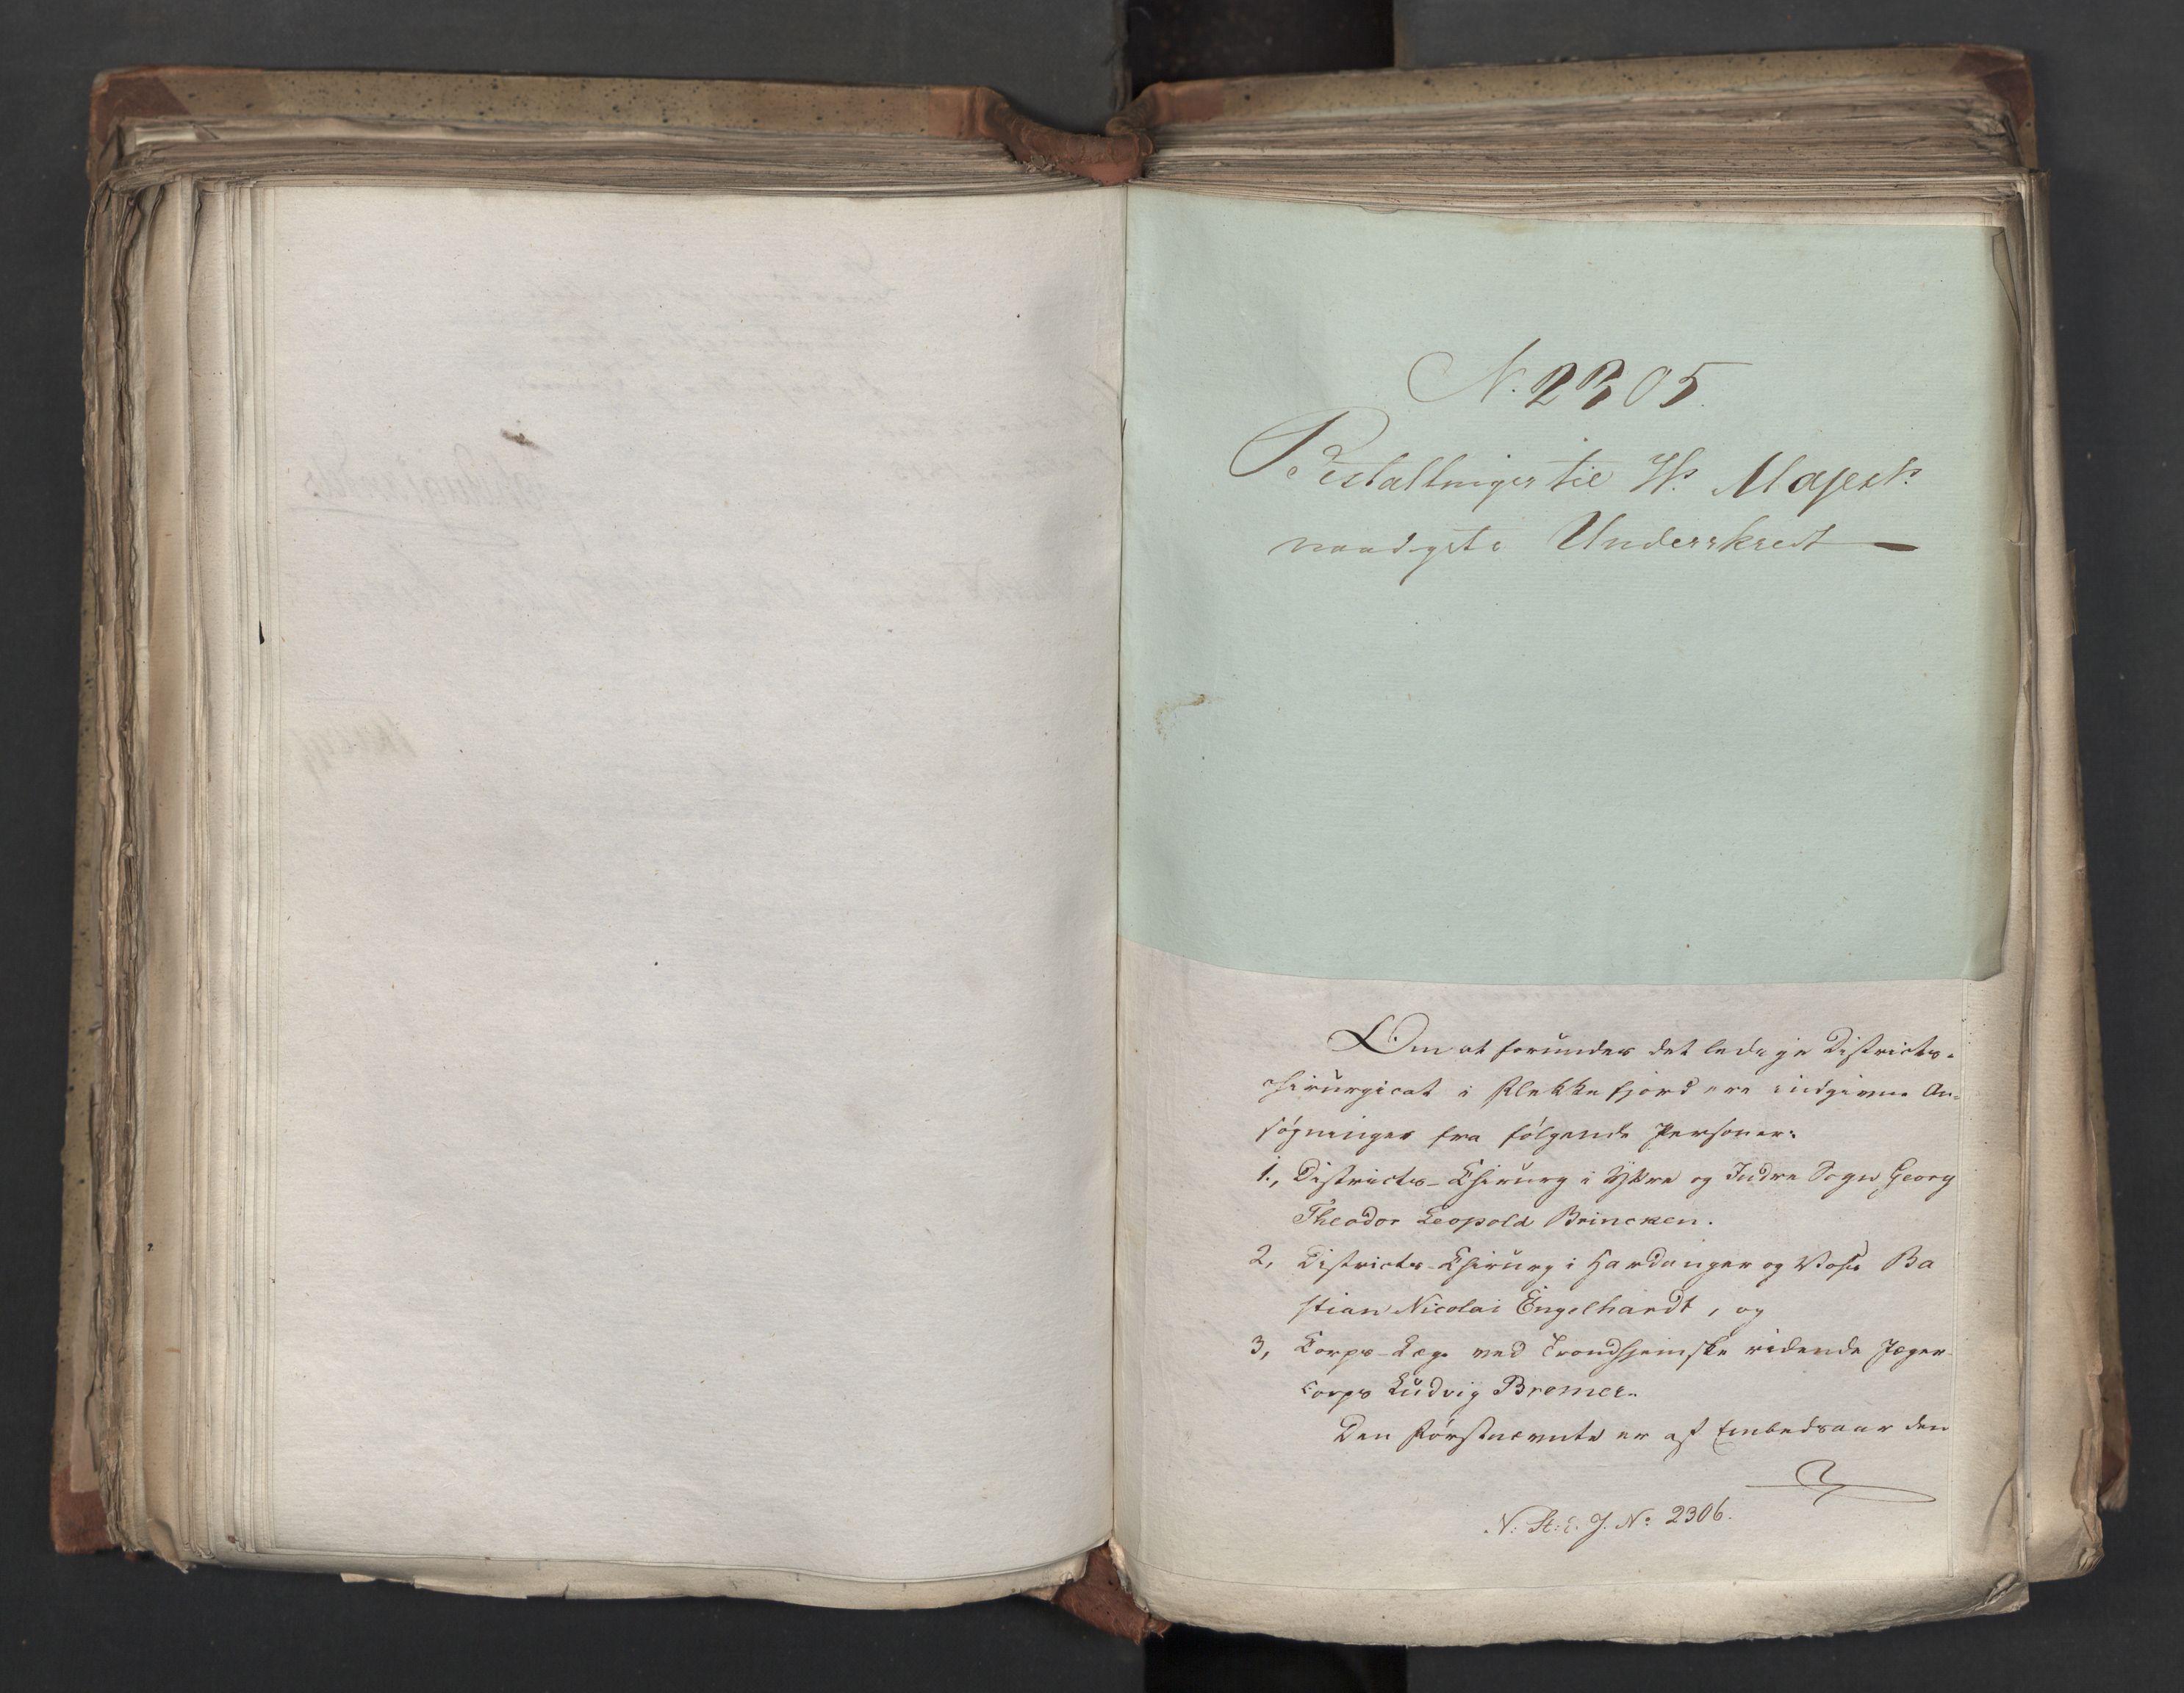 N. 2305.
Bestallninger til Hs. Majests.
naadgste Underskrift
Om at forundes det ledige Districts-
chirurgicat i Flekkefjord ere indgivne An-
søgninger fra følgende Personer:
1., Districts-Chirurg i Yttre og Indre Sogn, Georg
Theodor Leopold Brincken.
2, Districts-Chirurg i Hardanger og Voss Ba
stian Nicolai Engelhardt, og
3, Corps-Læge ved Trondhjemske ridende Jæger-
corps Ludvig Bremer.
Den førstnævnte er af Embedsaar den
N: St: E. J. No 2306.